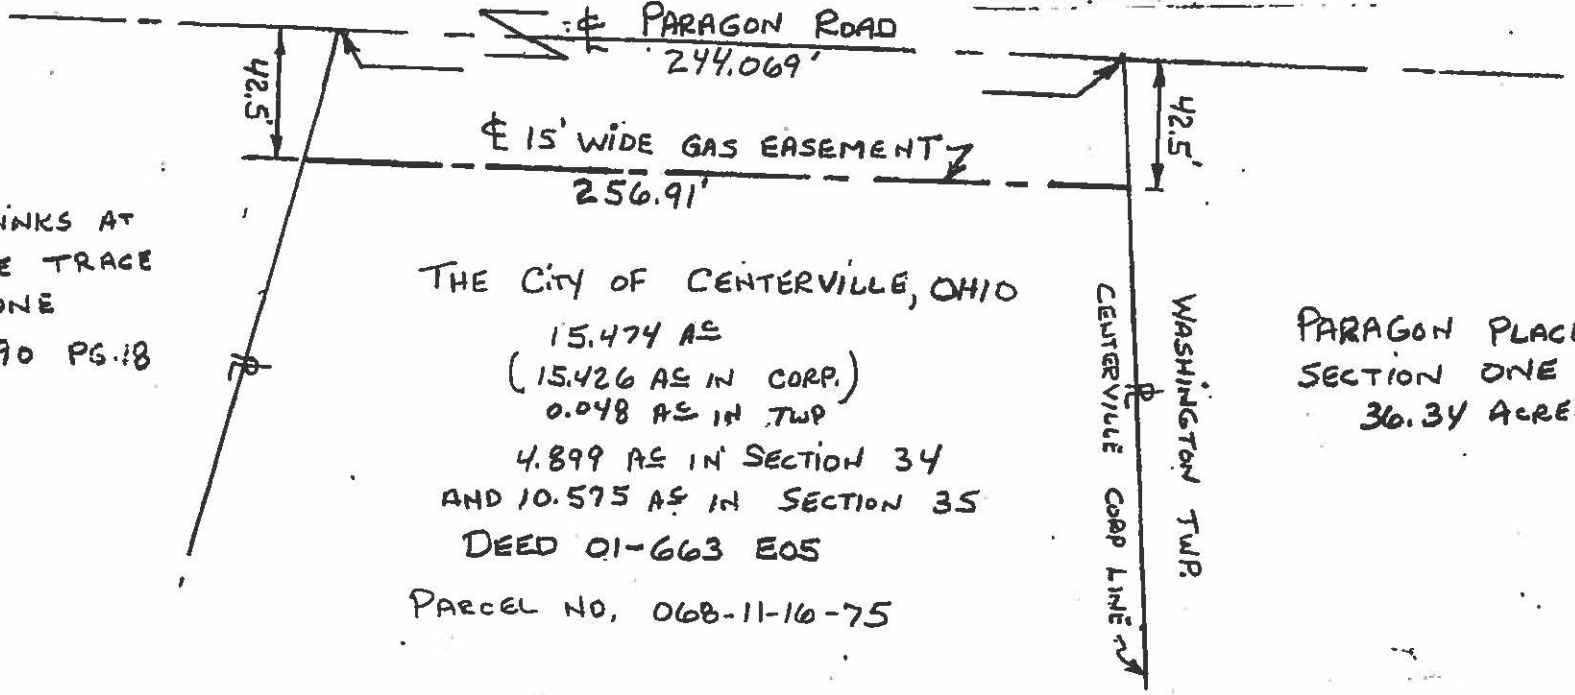 ℄ PARAGON ROAD
244.069'
42.5'
42.5'
℄ 15' WIDE GAS EASEMENT
256.91'
LINKS AT
TRACE
ONE
90 PG.18
THE CITY OF CENTERVILLE, OHIO
15.474 AC
(15.426 AC IN CORP.)
0.048 AC IN TWP
4.899 AC IN SECTION 34
AND 10.575 AC IN SECTION 35
DEED 01-663 E05
PARCEL NO. 068-11-16-75
℄
CENTERVILLE CORP LINE
℄
WASHINGTON TWP.
PARAGON PLACE
SECTION ONE
36.34 ACRE